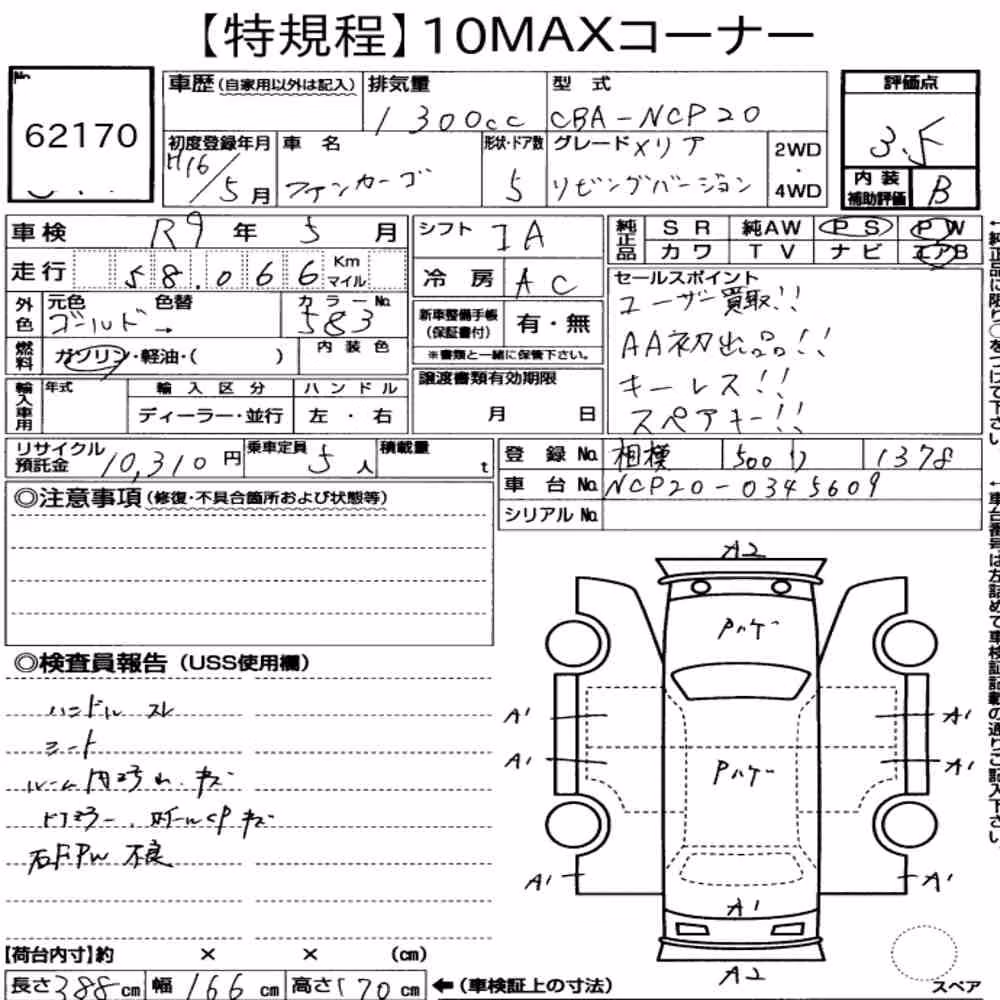 【特規程】10MAXコーナー
No
62170
車歴(自家用以外は記入)
排気量
1300cc
型式
CBA-NCP20
評価点
3.5
初度登録年月
H16/5月
車名
ファンカーゴ
形状・ドア数
5
グレード
メリア
リビングバージョン
2WD
・
4WD
内装
補助評価
B
車検 R9年 5月
走行 58.066 Km マイル
外色
元色
ゴールド→
色替
カラーNo
583
燃料
ガソリン・軽油・( )
内装色
輸入車用
年式
輸入区分
ディーラー・並行
ハンドル
左・右
シフト IA
冷房 AC
新車整備手帳
(保証書付)
有・無
※書類と一緒に保管下さい。
譲渡書類有効期限
月 日
純正品
SR 純AW PS PW
カワ TV ナビ エアB
セールスポイント
ユーザー買取!!
AA初出品!!
キーレス!!
スペアキー!!
←純正品に限り○をつけて下さい。
リサイクル
預託金
10,310円
乗車定員
5人
積載量
t
登録No 相模 500 り 1378
車台No NCP20-0345609
シリアルNo
←車台番号は左詰めて車検証記載の通りご記入下さい。
◎注意事項(修復・不具合箇所および状態等)
◎検査員報告(USS使用欄)
ハンドル スレ
シート
ルーム内汚れ.キズ
ドアミラー.ホイールCPキズ
右FPW 不良
A2
Pハゲ
A1
A1
A1
A1
Pハゲ
A1
A1
A1
A2
スペア
【荷台内寸】約 × × (cm)
長さ388cm 幅166cm 高さ170cm ←(車検証上の寸法)